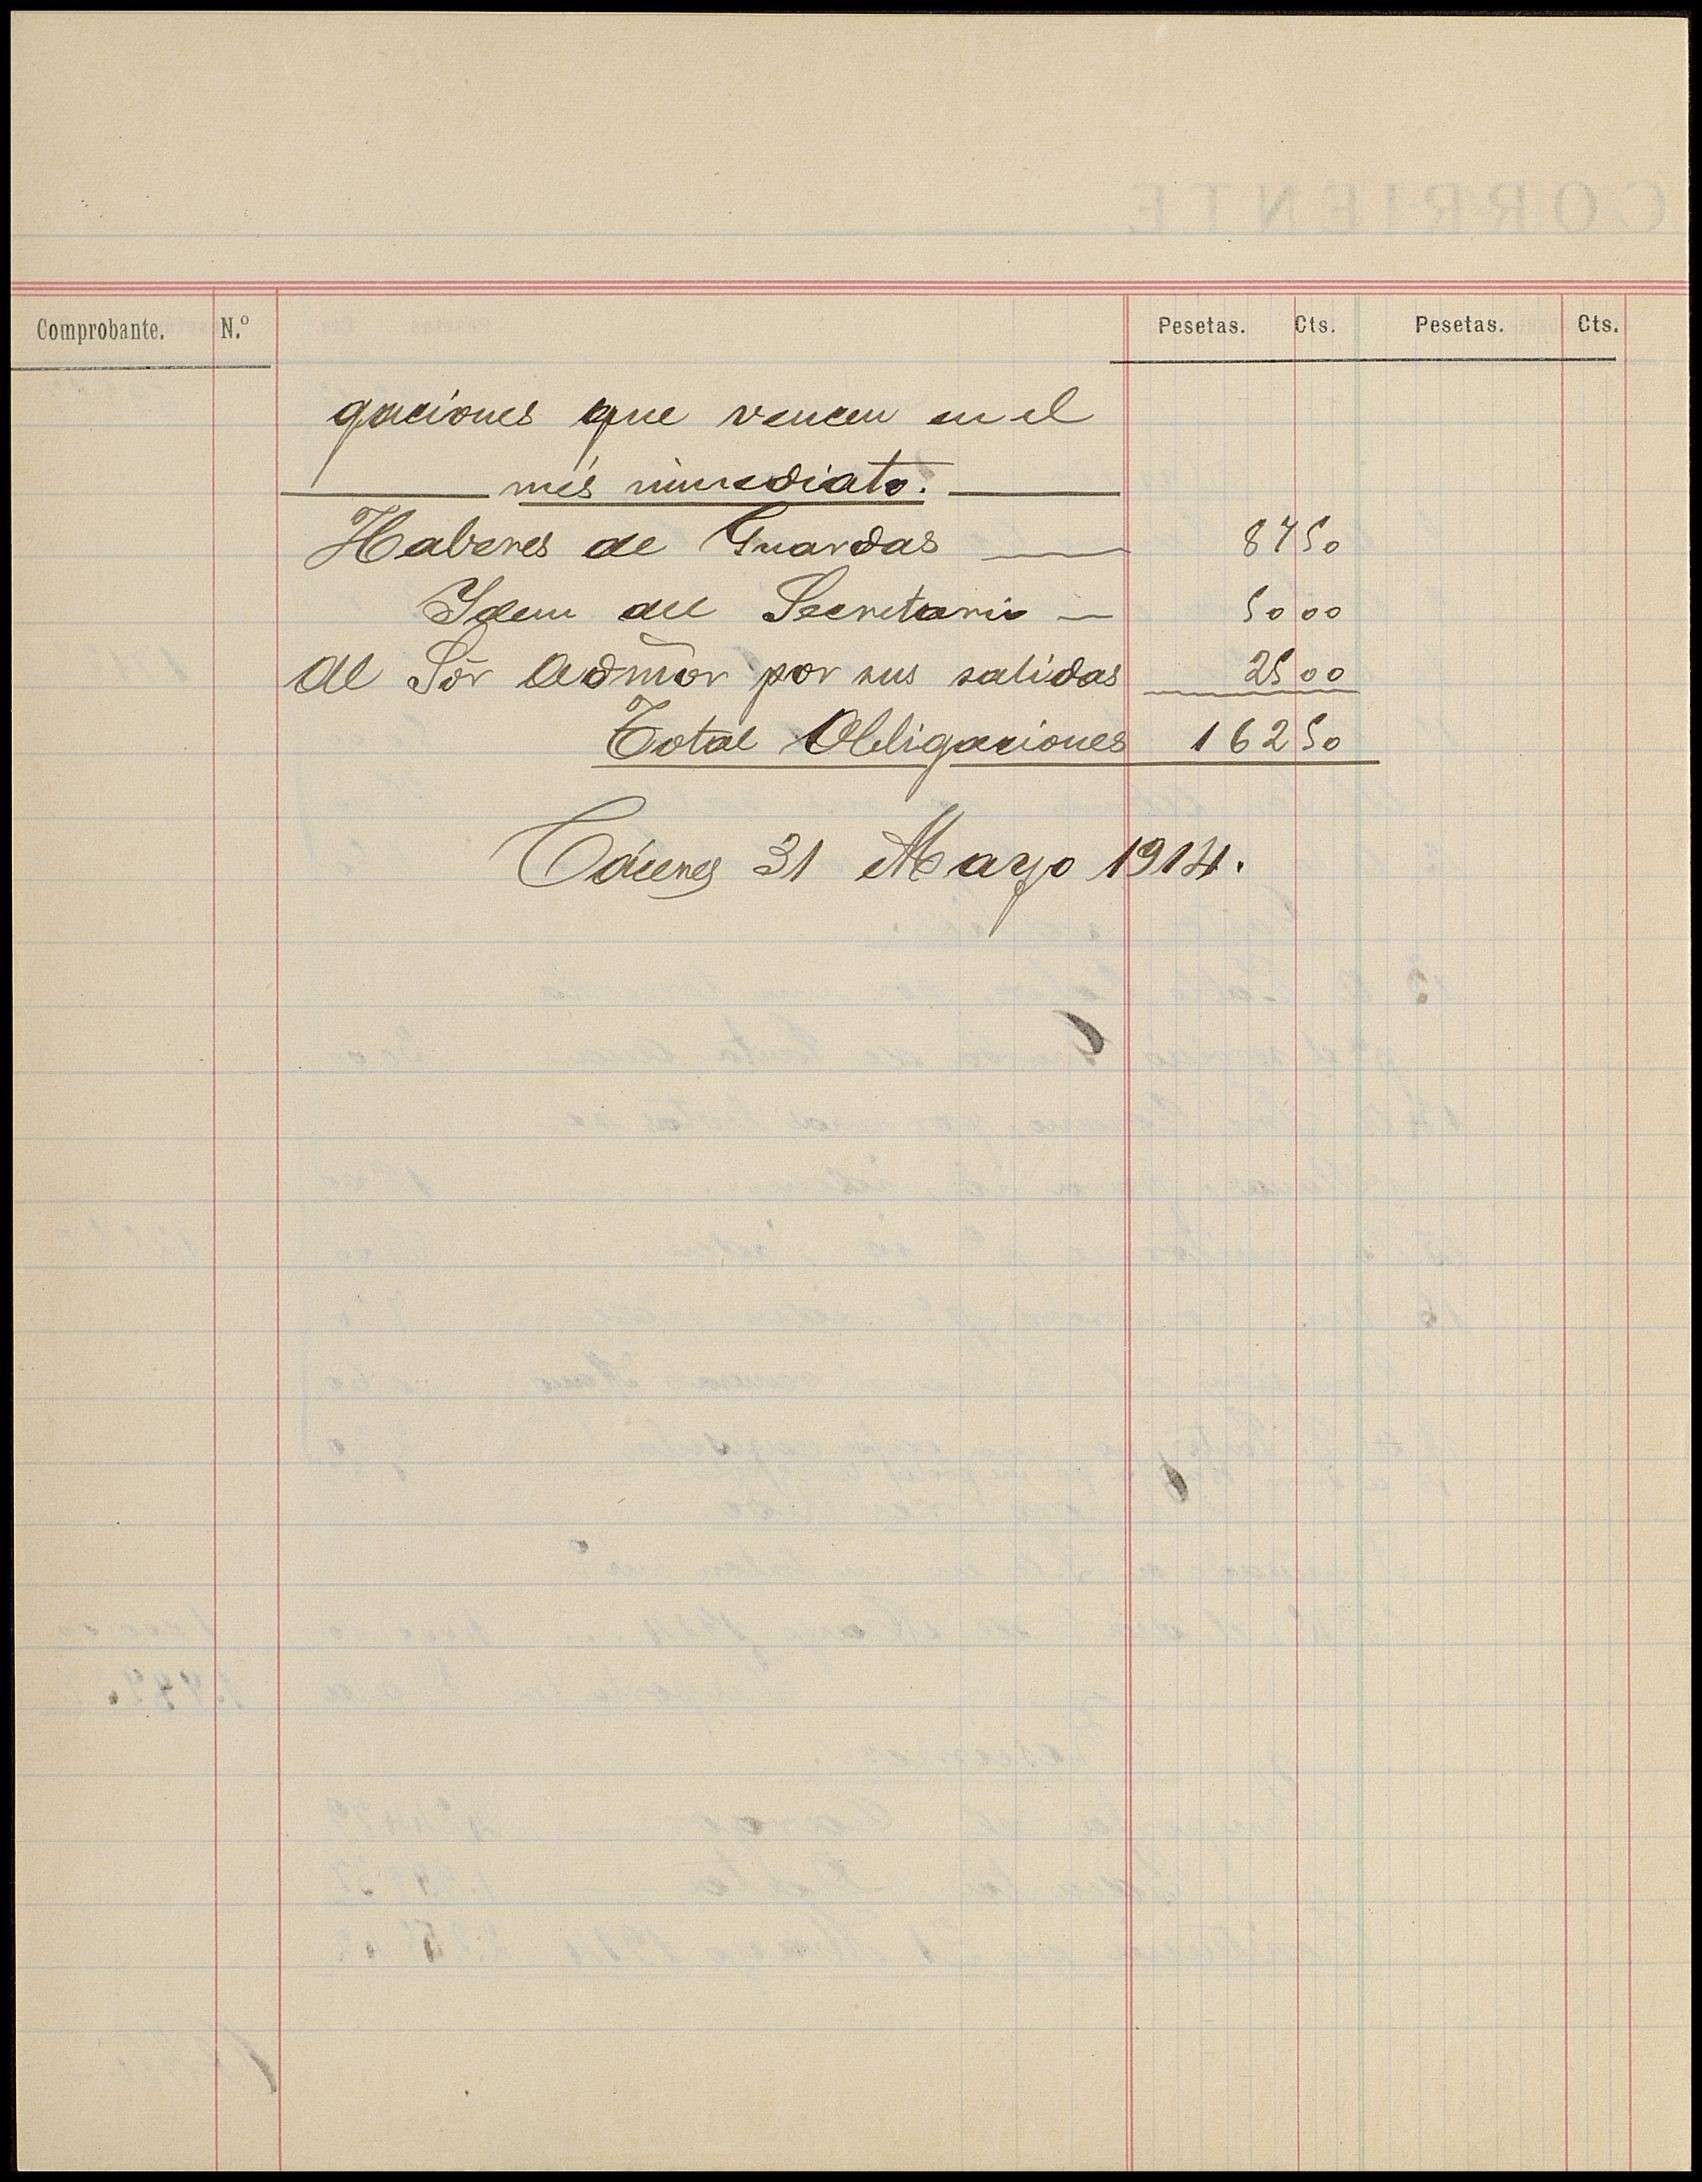 Comprobante. N.º Pesetas. Cts. Pesetas. Cts.
gaciones que vencen en el
més inmediato.
Haberes de Guardas 87 50
Idem del Secretario 50 00
Al Sōr Admōr por sus salidas 25 00
Total Obligaciones 162 50
Cáceres 31 Mayo 1914.